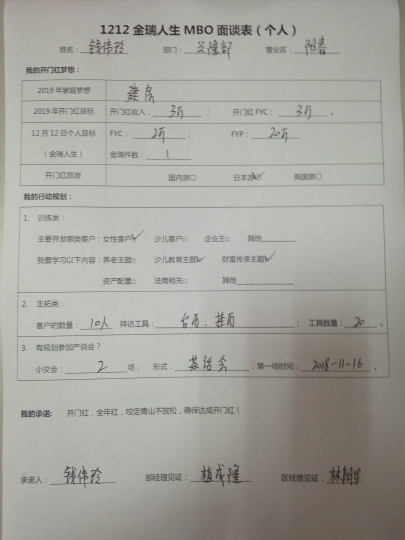 1212 金瑞人生 MBO 面谈表（个人）
姓名：钱伟玲 部门： 营业区：阳春
我的开门红梦想：
2019 年家庭梦想 建房
2019 年开门红目标 开门红收入：3万； 开门红 FYC：3万.
12 月 12 日个人目标 FYC：2万； FYP：20万
（金瑞人生） 金瑞件数：1
开门红旅游 国内游□ 日本游☑ 英国游□
我的行动规划：
1. 训练类：
主要开发哪类客户：女性客户☑ 少儿客户□ 企业主□ 其他
我要学习以下内容：养老主题□ 少儿教育主题☑ 财富传承主题☑
资产配置□ 法商相关□ 其他
2. 主拓类：
客户的数量：10人 拜访工具：台历、挂历； 工具数量：20.
3. 有规划参加产说会？
小交会：2 场； 形式：茶话会；第一场时间：2018-11-16.
我的承诺： 开门红，全年红，咬定青山不放松，确保达成开门红！
承进人：钱伟玲 部经理见证：植成隆 区经理见证：林朝晖